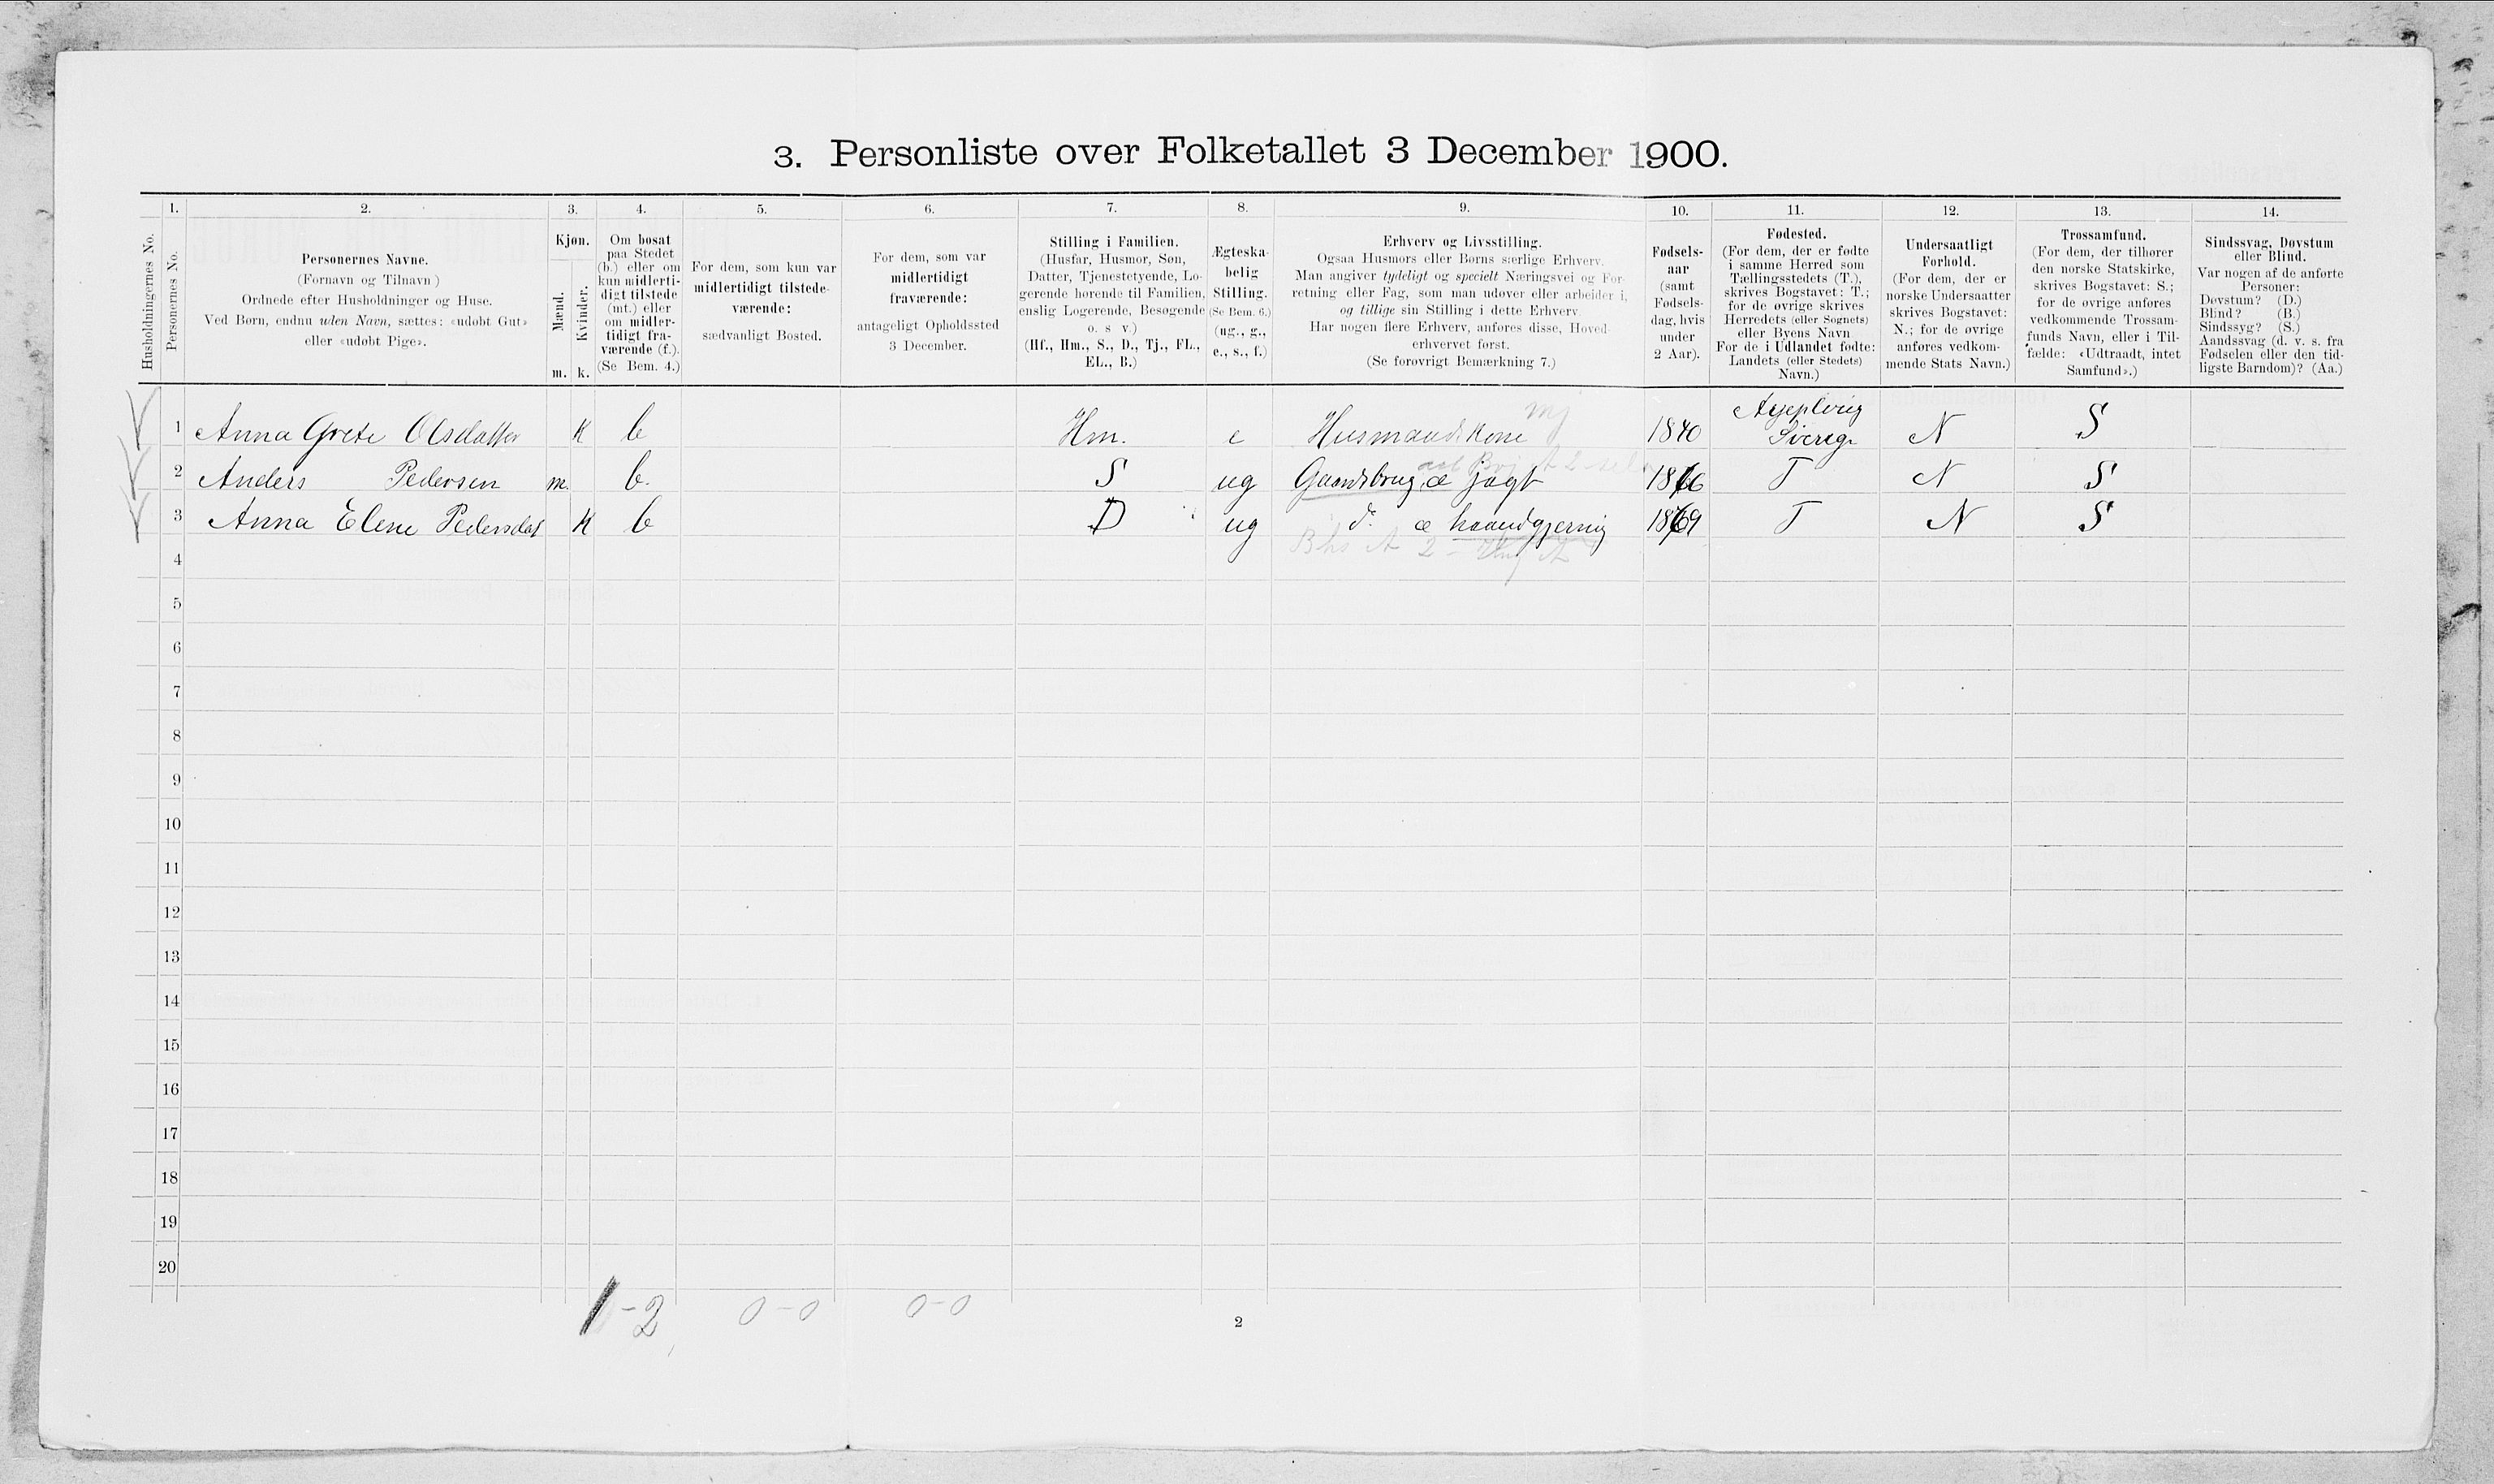 3. Personliste over Folketallet 3 December 1900.
1. 2. 3. 4. 5. 6. 7. 8. 9. 10. 11. 12. 13. 14.
Husholdningernes No.
Personernes No.
Personernes Navne.
(Fornavn og Tilnavn)
Ordnede efter Husholdninger og Huse.
Ved Børn, endnu uden Navn, sættes: «udøbt Gut»
eller «udøbt Pige».
Kjøn.
Mænd.
Kvinder.
m. k.
Om bosat
paa Stedet
(b.) eller om
kun midlerti-
digt tilstede
(mt.) eller
om midler-
tidigt fra-
værende (f.).
(Se Bem. 4.)
For dem, som kun var
midlertidigt tilstede-
værende:
sædvanligt Bosted.
For dem, som var
midlertidigt
fraværende:
antageligt Opholdssted
3 December.
Stilling i Familien.
(Husfar, Husmor, Søn,
Datter, Tjenestetyende, Lo-
gerende hørende til Familien,
enslig Logerende, Besøgende
o. s v.)
(Hf., Hm., S., D., Tj., FL.,
EL., B.)
Ægteska-
belig
Stilling.
(Se Bem. 6.)
(ug., g.,
e., s., f.)
Erhverv og Livsstilling.
Ogsaa Husmors eller Børns særlige Erhverv.
Man angiver tydeligt og specielt Næringsvei og For-
retning eller Fag, som man udøver eller arbeider i,
og tillige sin Stilling i dette Erhverv
Har nogen flere Erhverv, anføres disse, Hoved-
erhvervet først.
(Se forøvrigt Bemærkning 7.)
Fødsels-
aar
(samt
Fødsels-
dag, hvis
under
2 Aar).
Fødested.
(For dem, der er fødte
i samme Herred som
Tællingsstedets (T.),
skrives Bogstavet: T.;
for de øvrige skrives
Herredets (eller Sognets)
eller Byens Navn
For de i Udlandet fødte:
Landets (eller Stedets)
Navn.)
Undersaatligt
Forhold.
(For dem, der er
norske Undersaatter
skrives Bogstavet:
N.; for de øvrige
anføres vedkom-
mende Stats Navn.)
Trossamfund.
(For dem, der tilhører
den norske Statskirke,
skrives Bogstavet: S.;
for de øvrige anføres
vedkommende Trossam-
funds Navn, eller i Til-
fælde: «Udtraadt, intet
Samfund».)
Sindssvag, Døvstum
eller Blind.
Var nogen af de anførte
Personer:
Døvstum? (D.)
Blind? (B.)
Sindssyg? (S.)
Aandssvag (d. v. s. fra
Fødselen eller den tid-
ligste Barndom)? (Aa.)
1 Anna Grete Olsdatter K b Hm. e Husmandskone 1840 Sverige N S
2 Anders Pedersen m. b. S ug Gaardsbrug, & Jagt 1866 T N S
3 Anna Elene Pedersdat K b D ug d. & haandgjerning 1869 T N S
4
5
6
7
8
9
10
11
12
13
14
15
16
17
18
19
20
1-2 0-0 0-0
2